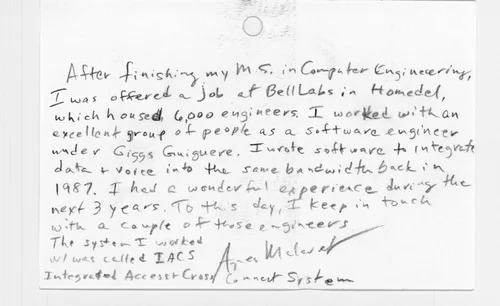 After finishing my M.S. in Computer Engineering,
I was offered a job at Bell Labs in Homedel,
which housed 6,000 engineers. I worked with an
excellent group of people as a software engineer
under Giggs Guiguere. I wrote software to integrate
data + voice into the same bandwidth back in
1987. I had a wonderful experience during the
next 3 years. To this day, I keep in touch
with a couple of those engineers
The system I worked
w/ was called IACS
Integrated Access + Cross Connect System